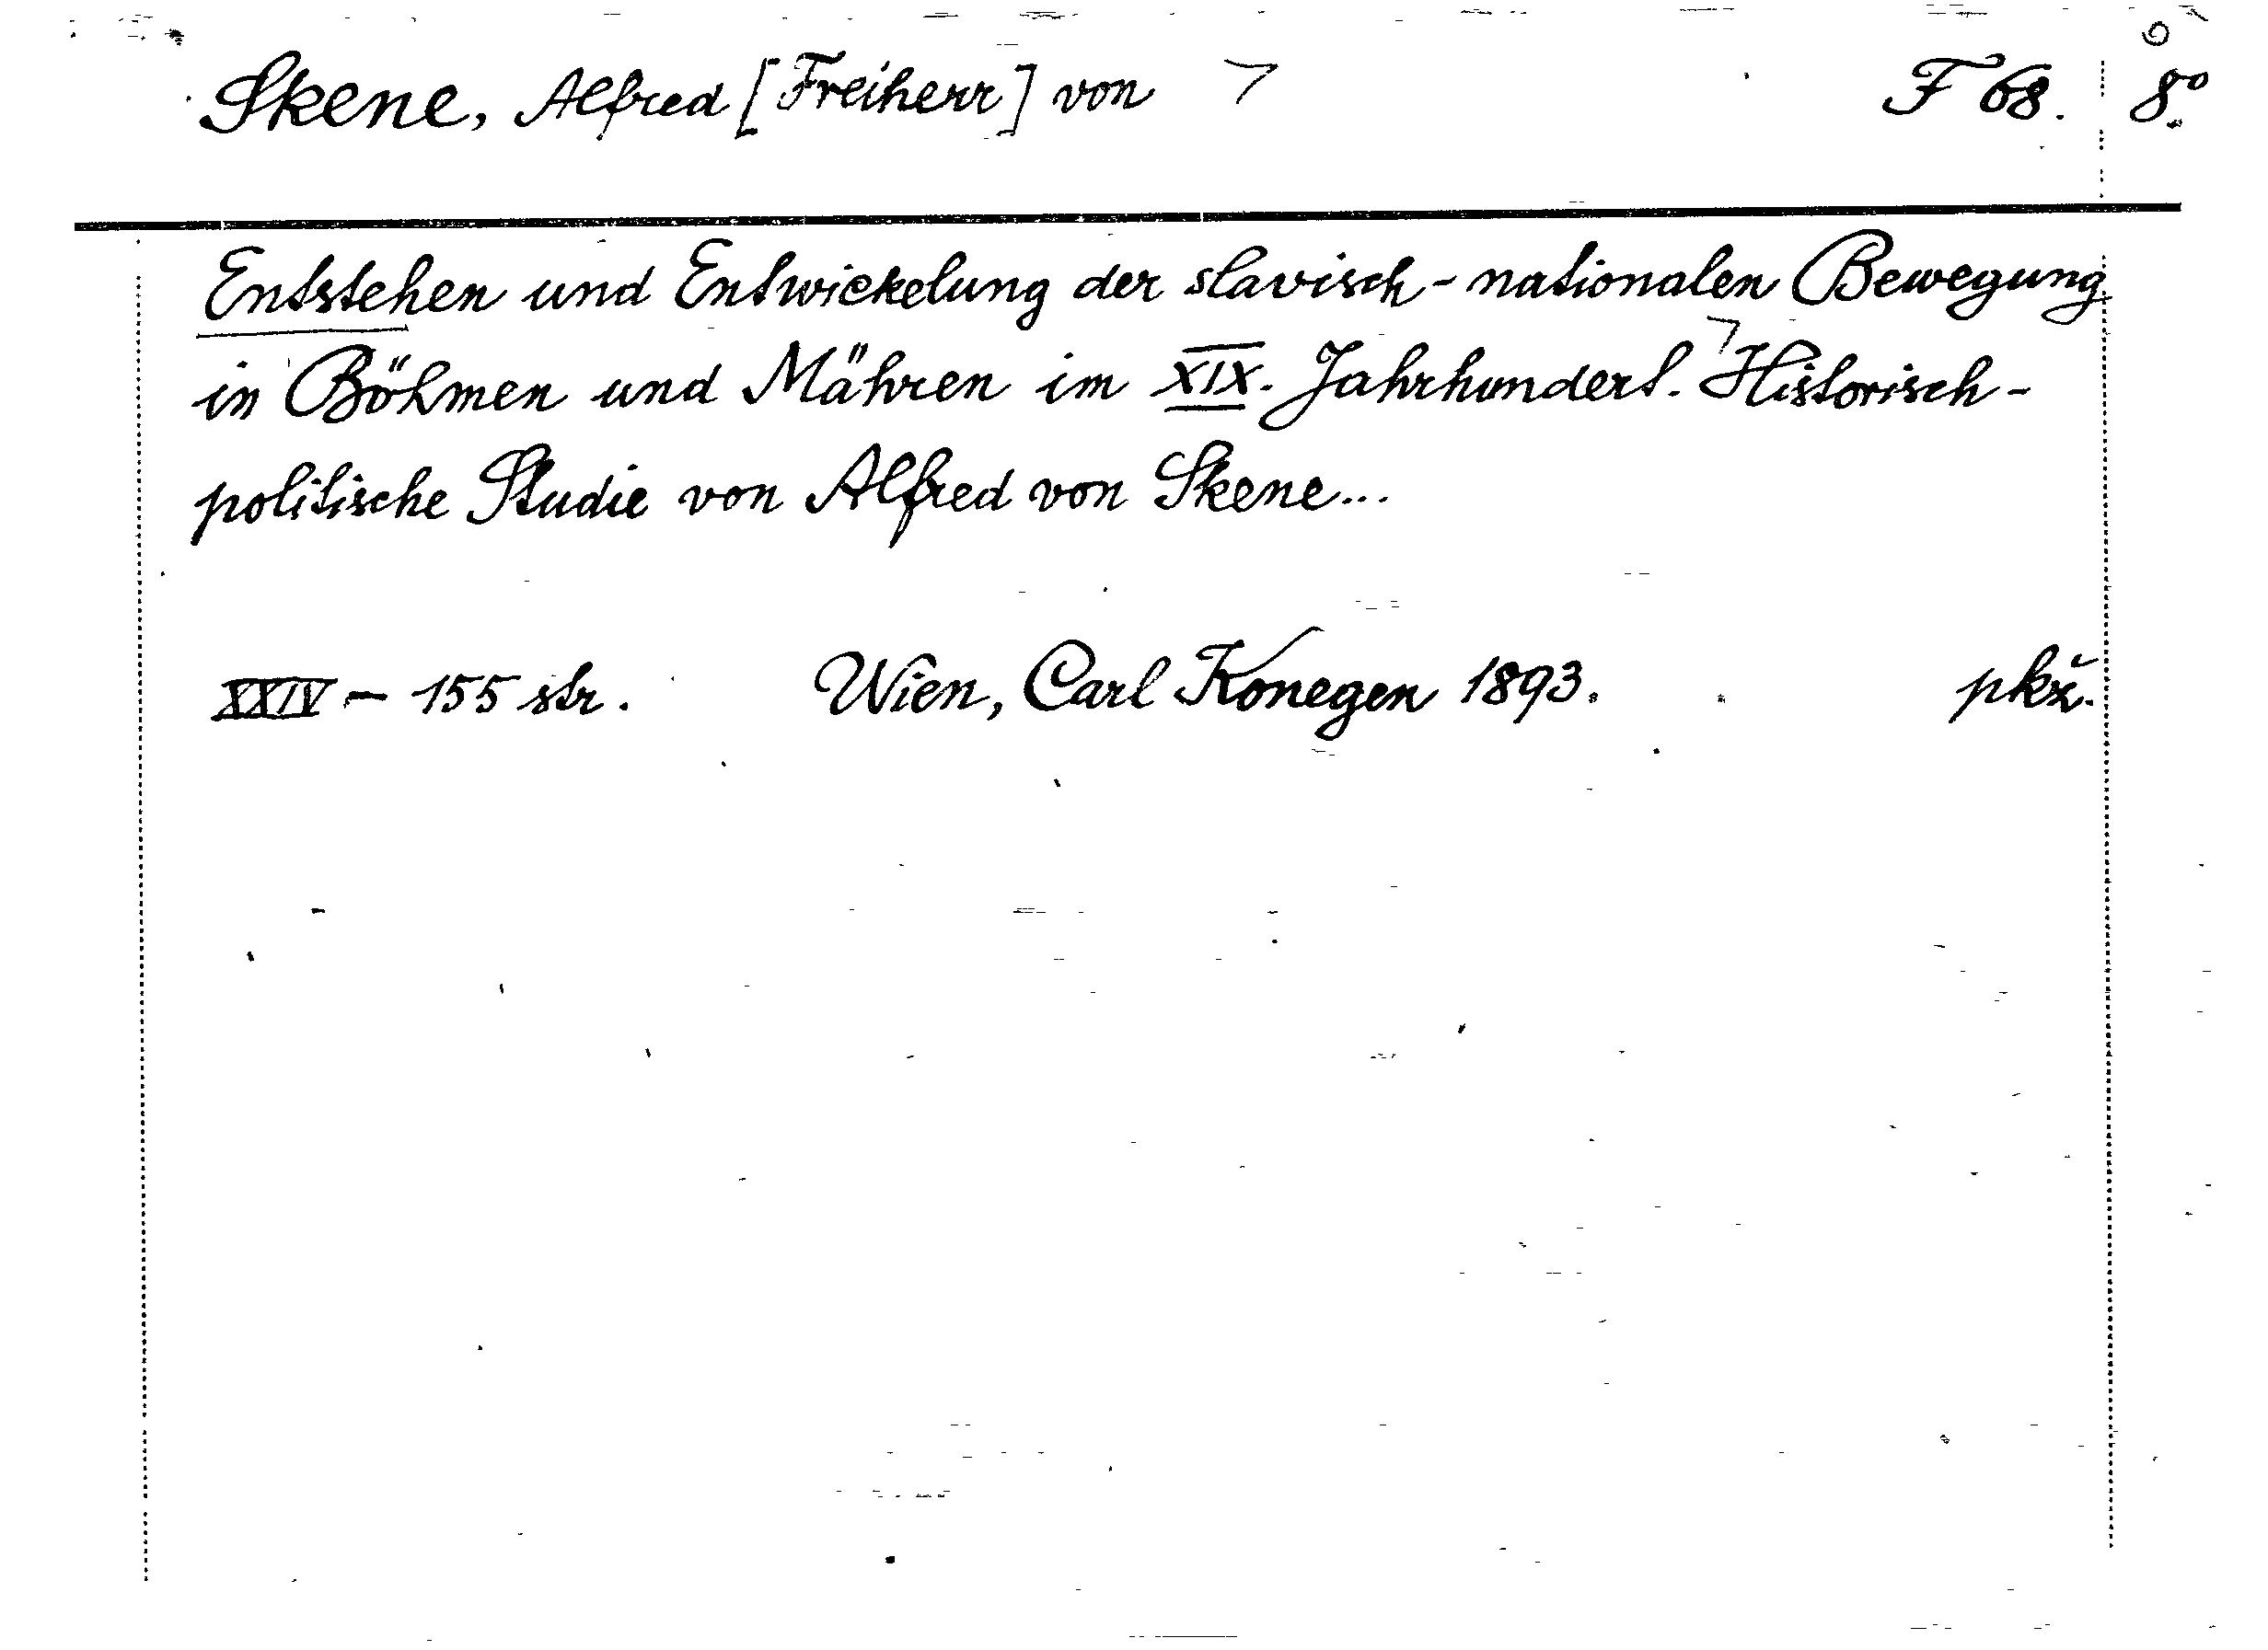 Skene, Alfred [Freiherr] von F 68. 8°
Entstehen und Entwickelung der slavisch-nationalen Bewegung
in Böhmen und Mähren im XIX. Jahrhundert. Historisch-
politische Studie von Alfred von Skene...
XXIV - 155 str. Wien, Carl Konegen 1893. pkž.